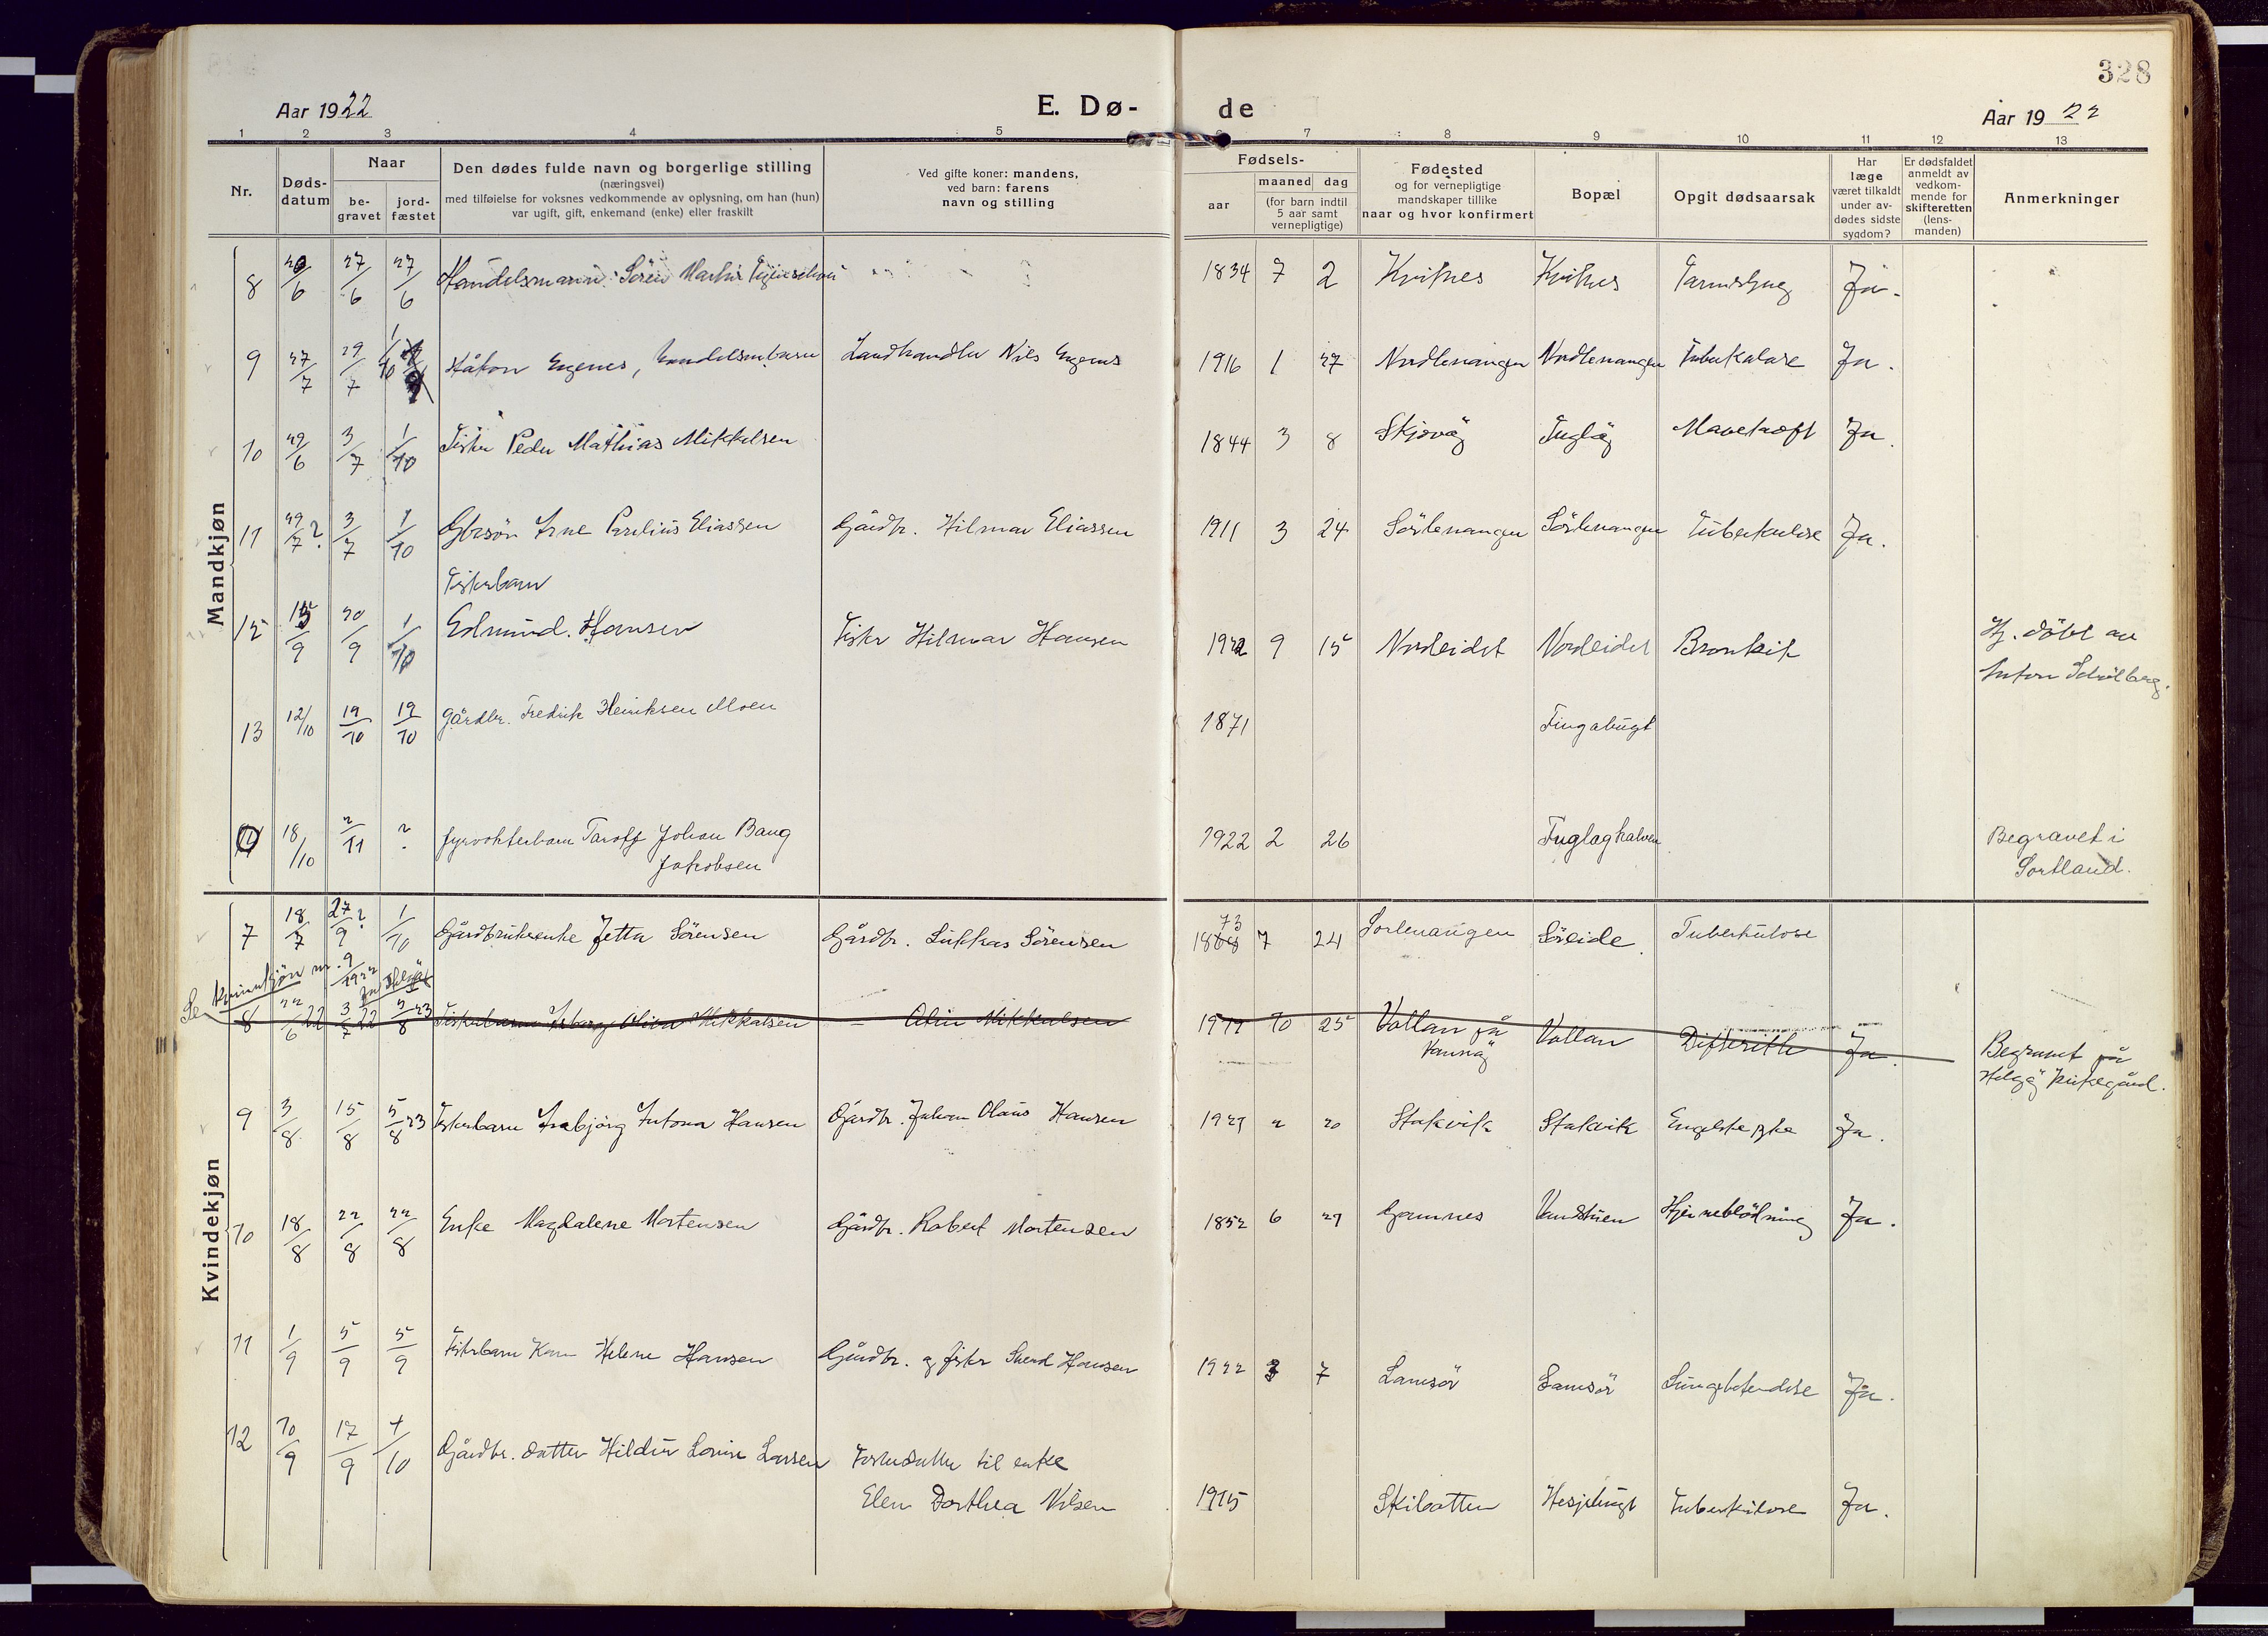 328
Aar 1922 E. Dø- de Aar 1922
1 2 3 4 5 6 7 8 9 10 11 12 13
Nr. Døds-datum Naar be-gravet jord-fæstet
Den dødes fulde navn og borgerlige stilling
(næringsvei)
med tilføielse for voksnes vedkommende av oplysning, om han (hun)
var ugift, gift, enkemand (enke) eller fraskilt
Ved gifte koner: mandens,
ved barn: farens
navn og stilling
Fødsels-
aar maaned dag
(for barn indtil
5 aar samt
vernepligtige)
Fødested
og for vernepligtige
mandskaper tillike
naar og hvor konfirmert
Bopæl
Opgit dødsaarsak
Har
læge
været tilkaldt
under av-
dødes sidste
sygdom?
Er dødsfaldet
anmeldt av
vedkom-
mende for
skifteretten
(lens-
manden)
Anmerkninger
Mandkjøn
8 /6 27/6 27/6 Handelsmann Sören Martin 1834 7 2 Kvitnes Kvitnes Ja.
9 27/7 29/7 1/10 Håkon Engenes, handelsmbarn Landhandler Nils Engenes 1916 1 27 Nordlenangen Nordlenangen Tuberkulose Ja.
10 29/6 3/7 1/10 Fisker Peder Mathias Mikkelsen 1844 3 8 Skjervöy Fuglöy Mavekræft Ja.
11 29/7? 3/7 1/10 Gbrsön Arne Parelius Eliassen Gårdbr. Hilmar Eliassen 1911 3 24 Sörlenangen Sörlenangen Tuberkulose Ja.
Fiskerbarn
12 15/9 20/9 1/10 Edmund Hansen Fisker Hilmar Hansen 1922 9 15 Nordeidet Nordeidet Bronkit Hj. döbt av
Anton
13 12/10 19/10 19/10 Gårdbr. Fredrik Henriksen Moen 1871 Fingabugt
14 18/10 2/11 ? fyrvokterbarn Taroff Johan Bang 1922 2 26 Fuglöykalven Begravet i
Jakobsen Sortland.
Kvindekjøn
7 18/7 27/9? 1/10 Gårdbrukerenke Jetta Sörensen Gårdbr. Lukkas Sörensen 1868 73 7 24 Sörlenangen Söreide. Tuberkulose
Se kvinnekjön nr. 9 1922
8 22/6 22 3/7 22 5/8 23 Fiskerbarn Olivia Mikkalsen – Alin Mikkalsen 1919 10 25 Vallan på Vallan Difterith Ja. Begravet på
Vannöy Helgöy kirkegård.
9 3/8 15/8 5/8 23 Fiskerbarn Ingbjörg Antona Hansen Gårdbr. Johan Olaus Hansen 1921 2 20 Stakvik Stakvik Engelske syke Ja.
10 18/8 22/8 22/8 Enke Magdalene Mortensen Gårdbr. Robert Mortensen 1852 6 29 Gamnes Vandstuen Hjerneblödning Ja.
11 1/9 5/9 5/9 Fiskerbarn Karen Helene Hansen Gårdbr. og fisker Hansen 1922 3 7 Lanesör Lanesör Lungebetendelse Ja.
12 10/9 17/9 1/10 Gårdbr. datter Hildur Lovise Larsen Fosterdatter til enke
Elen Dorthea Nilsen 1915 Skibotten Hesjebugt Tuberkulose Ja.